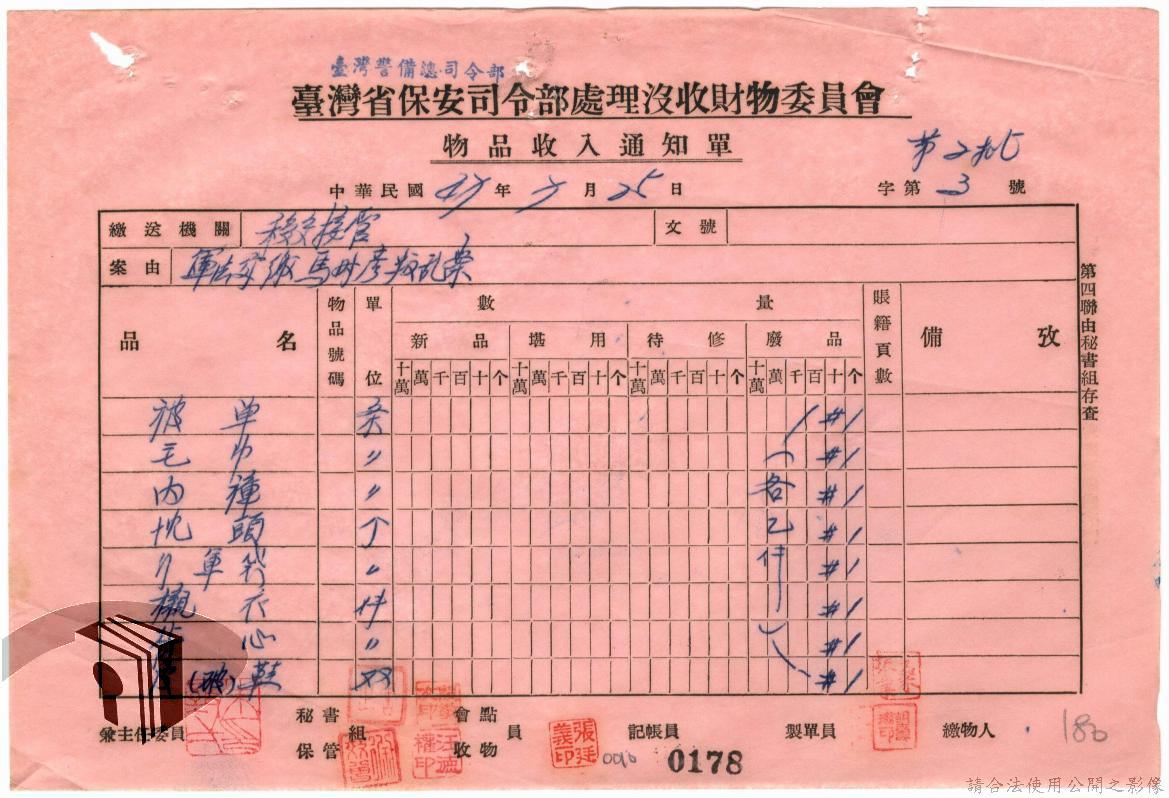 臺灣警備總司令部
臺灣省保安司令部處理沒收財物委員會
物品收入通知單
中華民國47年7月25日
字第3號
繳送機關 移交接管 文號
案由
第四聯由秘書組存查
品名 物品號碼 單位 數量 賬籍頁數 備攷
新品 堪用 待修 廢品
十萬 萬 千 百 十 个 十萬 萬 千 百 十 个 十萬 萬 千 百 十 个 十萬 萬 千 百 十 个
被单 条 #1
毛巾 〃 #1
内褲 〃 各 #1
枕頭 个 乙 #1
〃 件 #1
襯衣 件 #1
心 〃 #1
(破)鞋 双 #1
兼主任委員 秘書組 保管 會點 收物 員 記帳員 製單員 繳物人
張廷義印
0178
180
請合法使用公開之影像